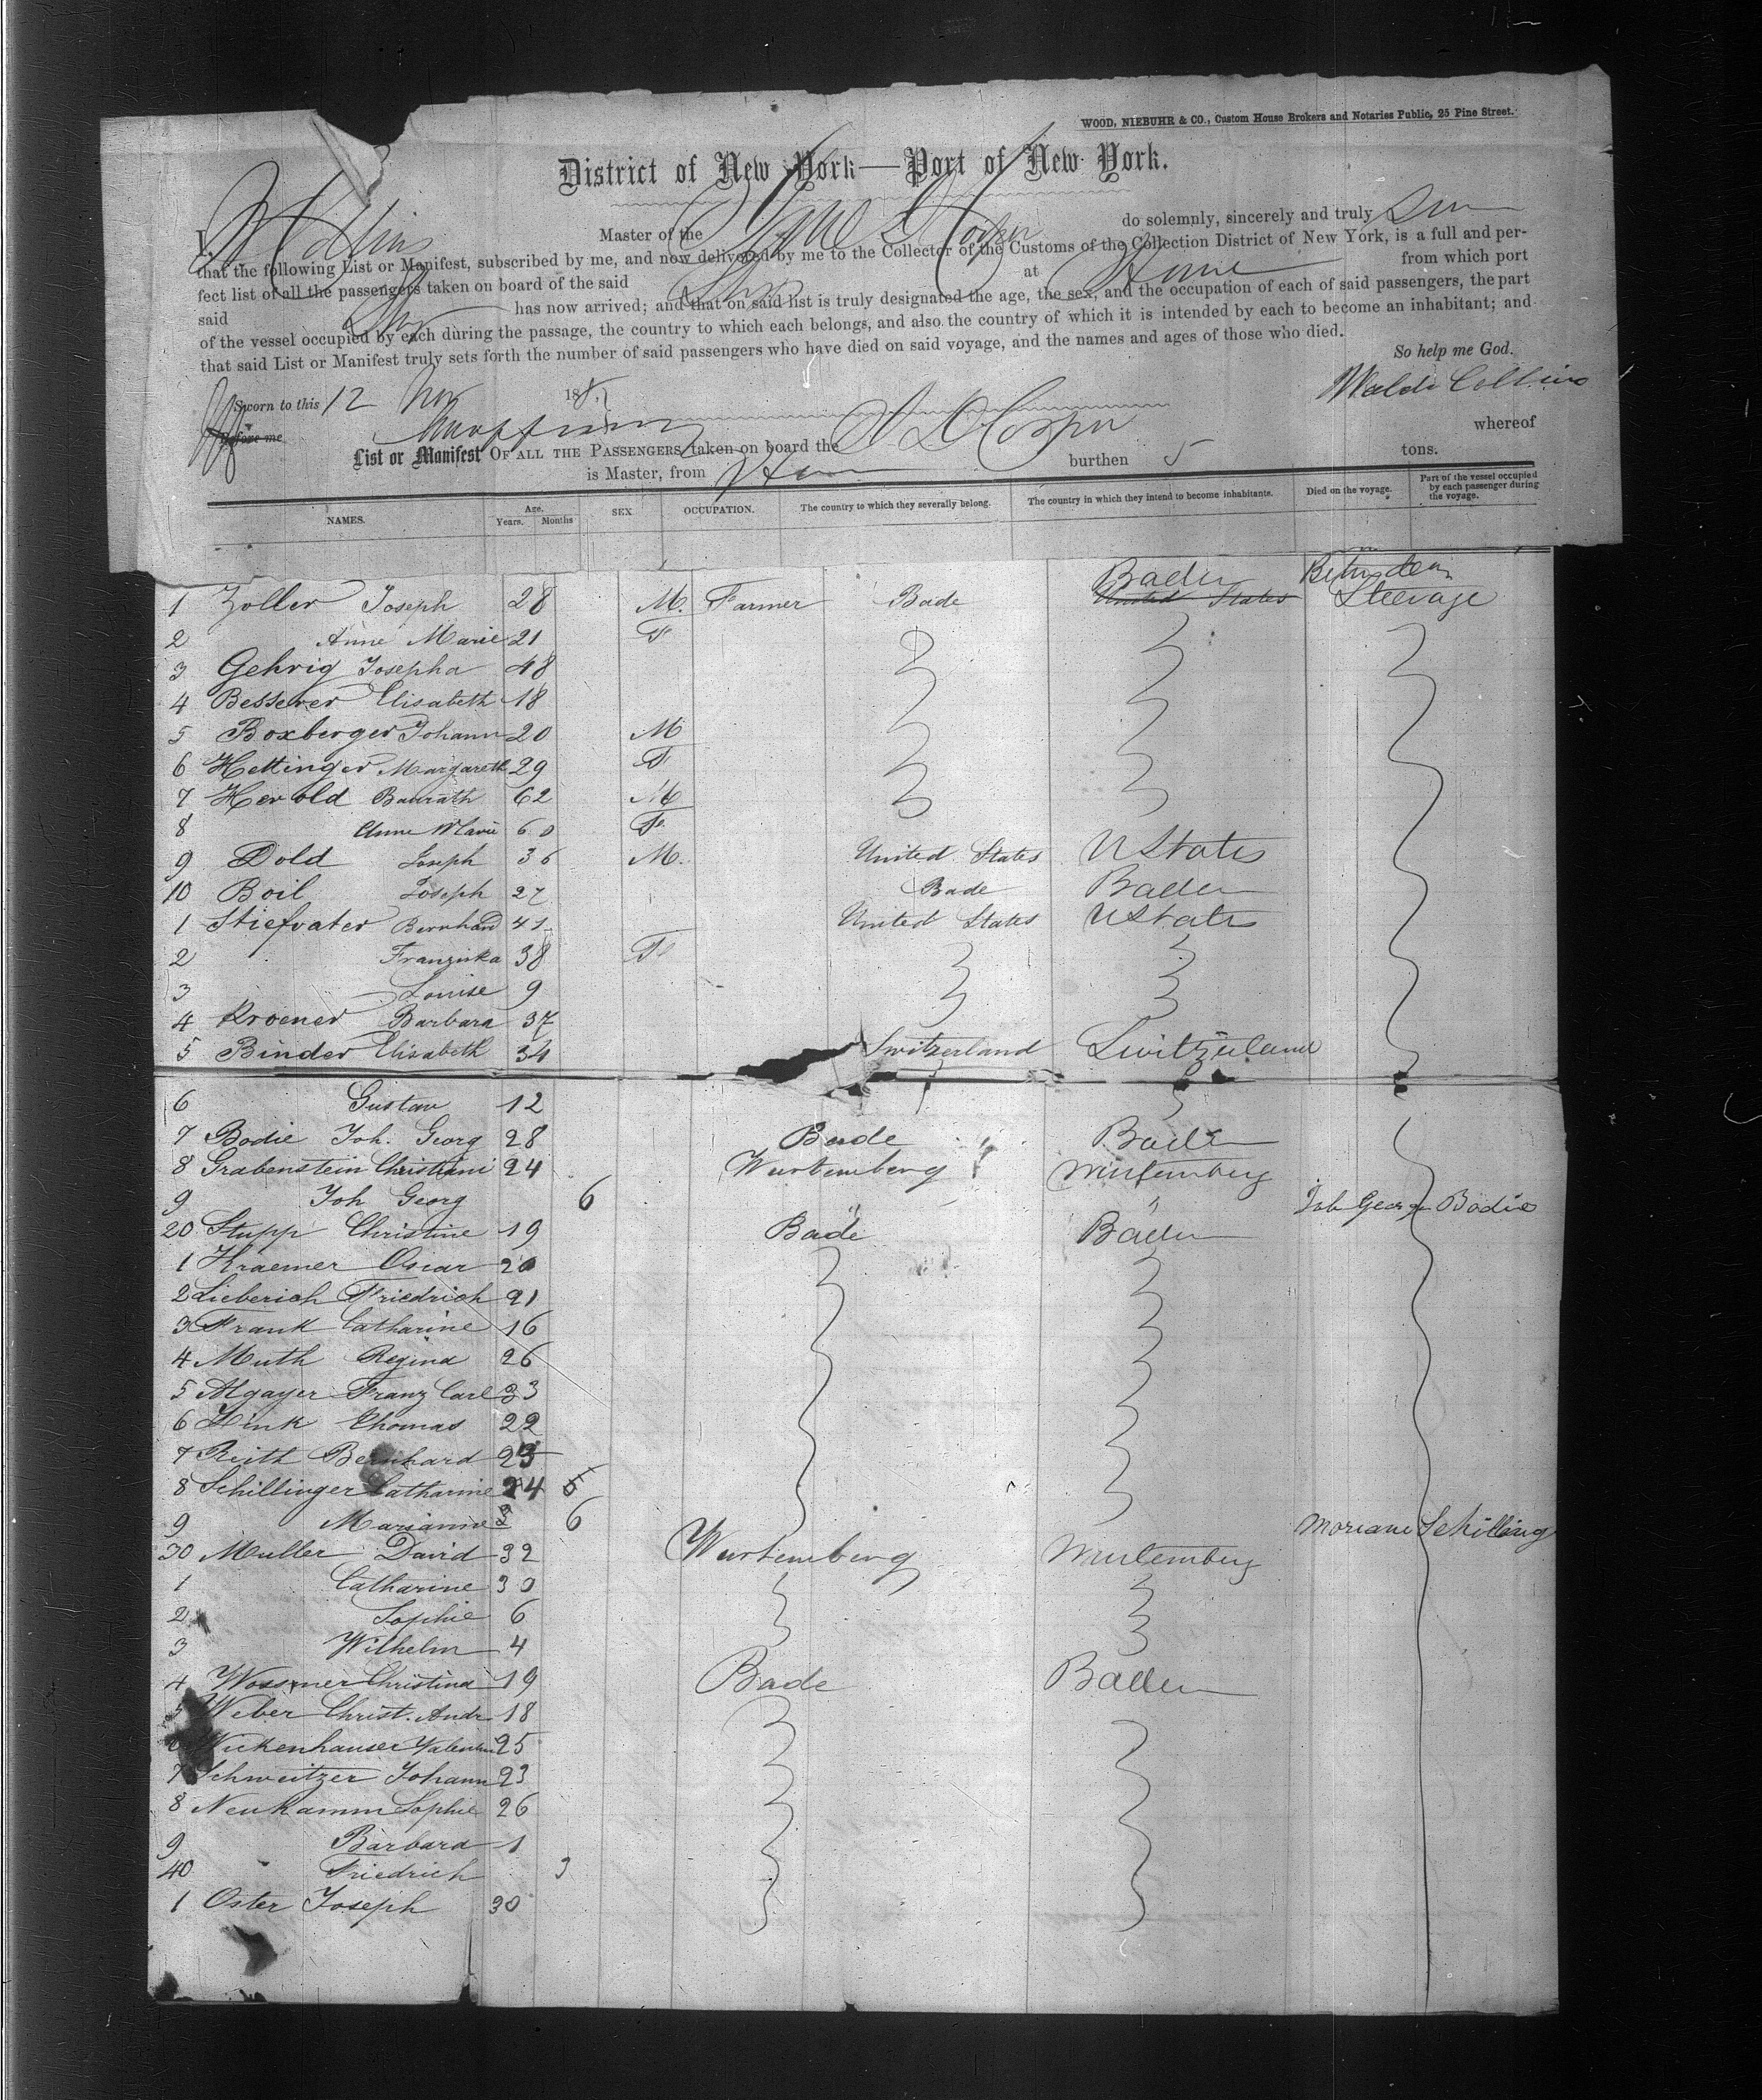 WOOD, NIEBUHR & CO., Custom House Brokers and Notaries Public, 25 Pine Street.
District of New York—Port of New York.
I, Master of the do solemnly, sincerely and truly
that the following List or Manifest, subscribed by me, and now delivered by me to the Collector of the Customs of the Collection District of New York, is a full and per-
fect list of all the passengers taken on board of the said Ship at Havre from which port
said Ship has now arrived; and that on said list is truly designated the age, the sex, and the occupation of each of said passengers, the part
of the vessel occupied by each during the passage, the country to which each belongs, and also the country of which it is intended by each to become an inhabitant; and
that said List or Manifest truly sets forth the number of said passengers who have died on said voyage, and the names and ages of those who died.
So help me God.
Sworn to this 12 Nov 185 Waldo Collins
Before me
List or Manifest OF ALL THE PASSENGERS taken on board the whereof
is Master, from Havre burthen tons.
NAMES. Age. Years. Months SEX OCCUPATION. The country to which they severally belong. The country in which they intend to become inhabitants. Died on the voyage. Part of the vessel occupied by each passenger during the voyage.
Baden
1 Zoller Joseph 28 M. Farmer Bade United States Steerage
2 Anne Marie 21 F
3 Gehrig Josepha 48
4 Besserer Elisabeth 18
5 Boxberger Johann 20 M
6 Hettinger Margareth 29 F
7 Herold 62 M
8 Anne Marie 60 F
9 Dold Joseph 36 M. United States UStates
10 Boil Joseph 27 Bade Baden
1 Stiefvater Bernhard 41 United States UStates
2 Franziska 38 F
3 Louise 9
4 Kroener Barbara 37
5 Binder Elisabeth 34 Switzerland Switzerland
6 Gustav 12
7 Bodie Joh. Georg 28 Bade Baden
8 Grabenstein Christiani 24 Wurtemberg Wurtemberg
9 Joh Georg 6 " " Joh Georg Bodie
20 Stupp Christine 19 Bade Baden
1 Kraemer Oscar 20
2 Lieberich Friedrich 21
3 Frank Catharine 16
4 Muth Regina 26
5 Algayer Franz Carl 33
6 Zink Thomas 22
7 Reith Bernhard 23
8 Schillinger Catharine 24
9 Marianne 6 Mariane Schilling
30 Muller David 32 Wurtemberg Wurtemberg
1 Catharine 30
2 Sophie 6
3 Wilhelm 4
4 Wossmer Christina 19 Bade Baden
5 Weber Christ. Andr 18
6 Wickenhauser Valentin 25
7 Schweitzer Johann 23
8 Neukamm Sophie 26
9 Barbara 1
40 Friedrich 3
1 Oster Joseph 30